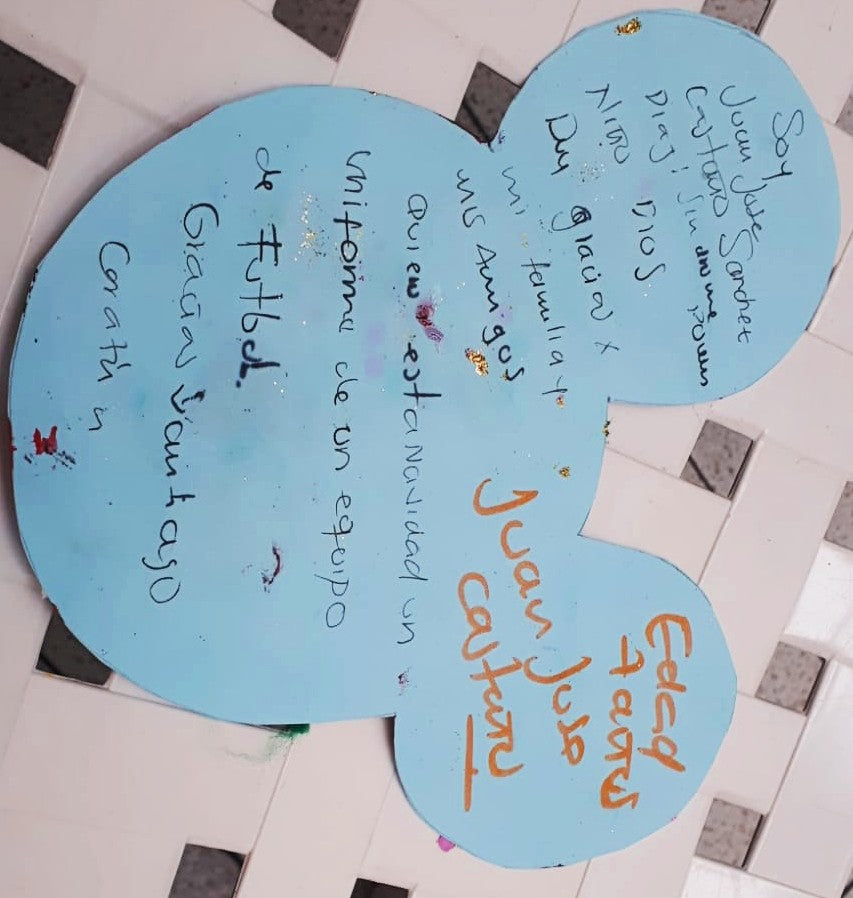 Soy
Juan Jose
Castaño Sanchez
Diaz; Sin
Niño Dios.
Doy gracias x
mi familia y
mis Amigos
Quiero esta Navidad un
uniforme de un equipo
de Futbol.
Gracias Santiago
Juan Jose
Castaño
Edad
7 años